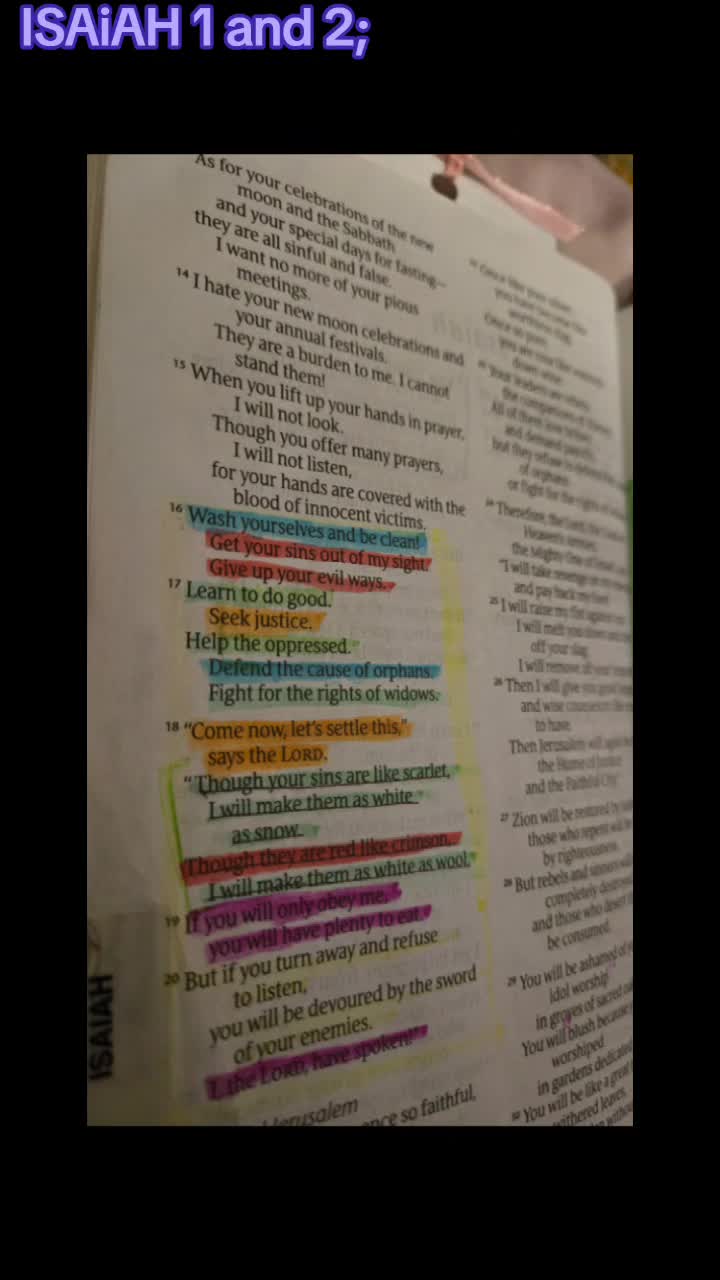 ISAiAH 1 and 2;
As for your celebrations of the new
moon and the Sabbath
and your special days for fasting—
they are all sinful and false.
I want no more of your pious
meetings.
14 I hate your new moon celebrations and
your annual festivals.
They are a burden to me. I cannot
stand them!
15 When you lift up your hands in prayer,
I will not look.
Though you offer many prayers,
I will not listen,
for your hands are covered with the
blood of innocent victims.
16 Wash yourselves and be clean!
Get your sins out of my sight.
Give up your evil ways.
17 Learn to do good.
Seek justice.
Help the oppressed.
Defend the cause of orphans.
Fight for the rights of widows.
18 “Come now, let’s settle this,”
says the LORD.
“Though your sins are like scarlet,
I will make them as white
as snow.
Though they are red like crimson,
I will make them as white as wool.
19 If you will only obey me,
you will have plenty to eat.
20 But if you turn away and refuse
to listen,
you will be devoured by the sword
of your enemies.
I, the LORD, have spoken!”
Jerusalem
so faithful,
ISAIAH
24 Therefore, the Lord, the
Heaven's Armies,
the Mighty One of
“I will take revenge on my
and pay back my
25 I will raise my fist against
I will melt you down and
off your slag.
I will remove all your
26 Then I will give you good
and wise counselors like
to have.
Then Jerusalem will again
the Home of Justice
and the Faithful City.”
27 Zion will be restored by
those who repent will be
by righteousness.
28 But rebels and sinners will
completely destroyed,
and those who desert
be consumed.
29 You will be ashamed of
idol worship
in groves of sacred
You will blush because
worshiped
in gardens dedicated
30 You will be like a great
withered leaves,